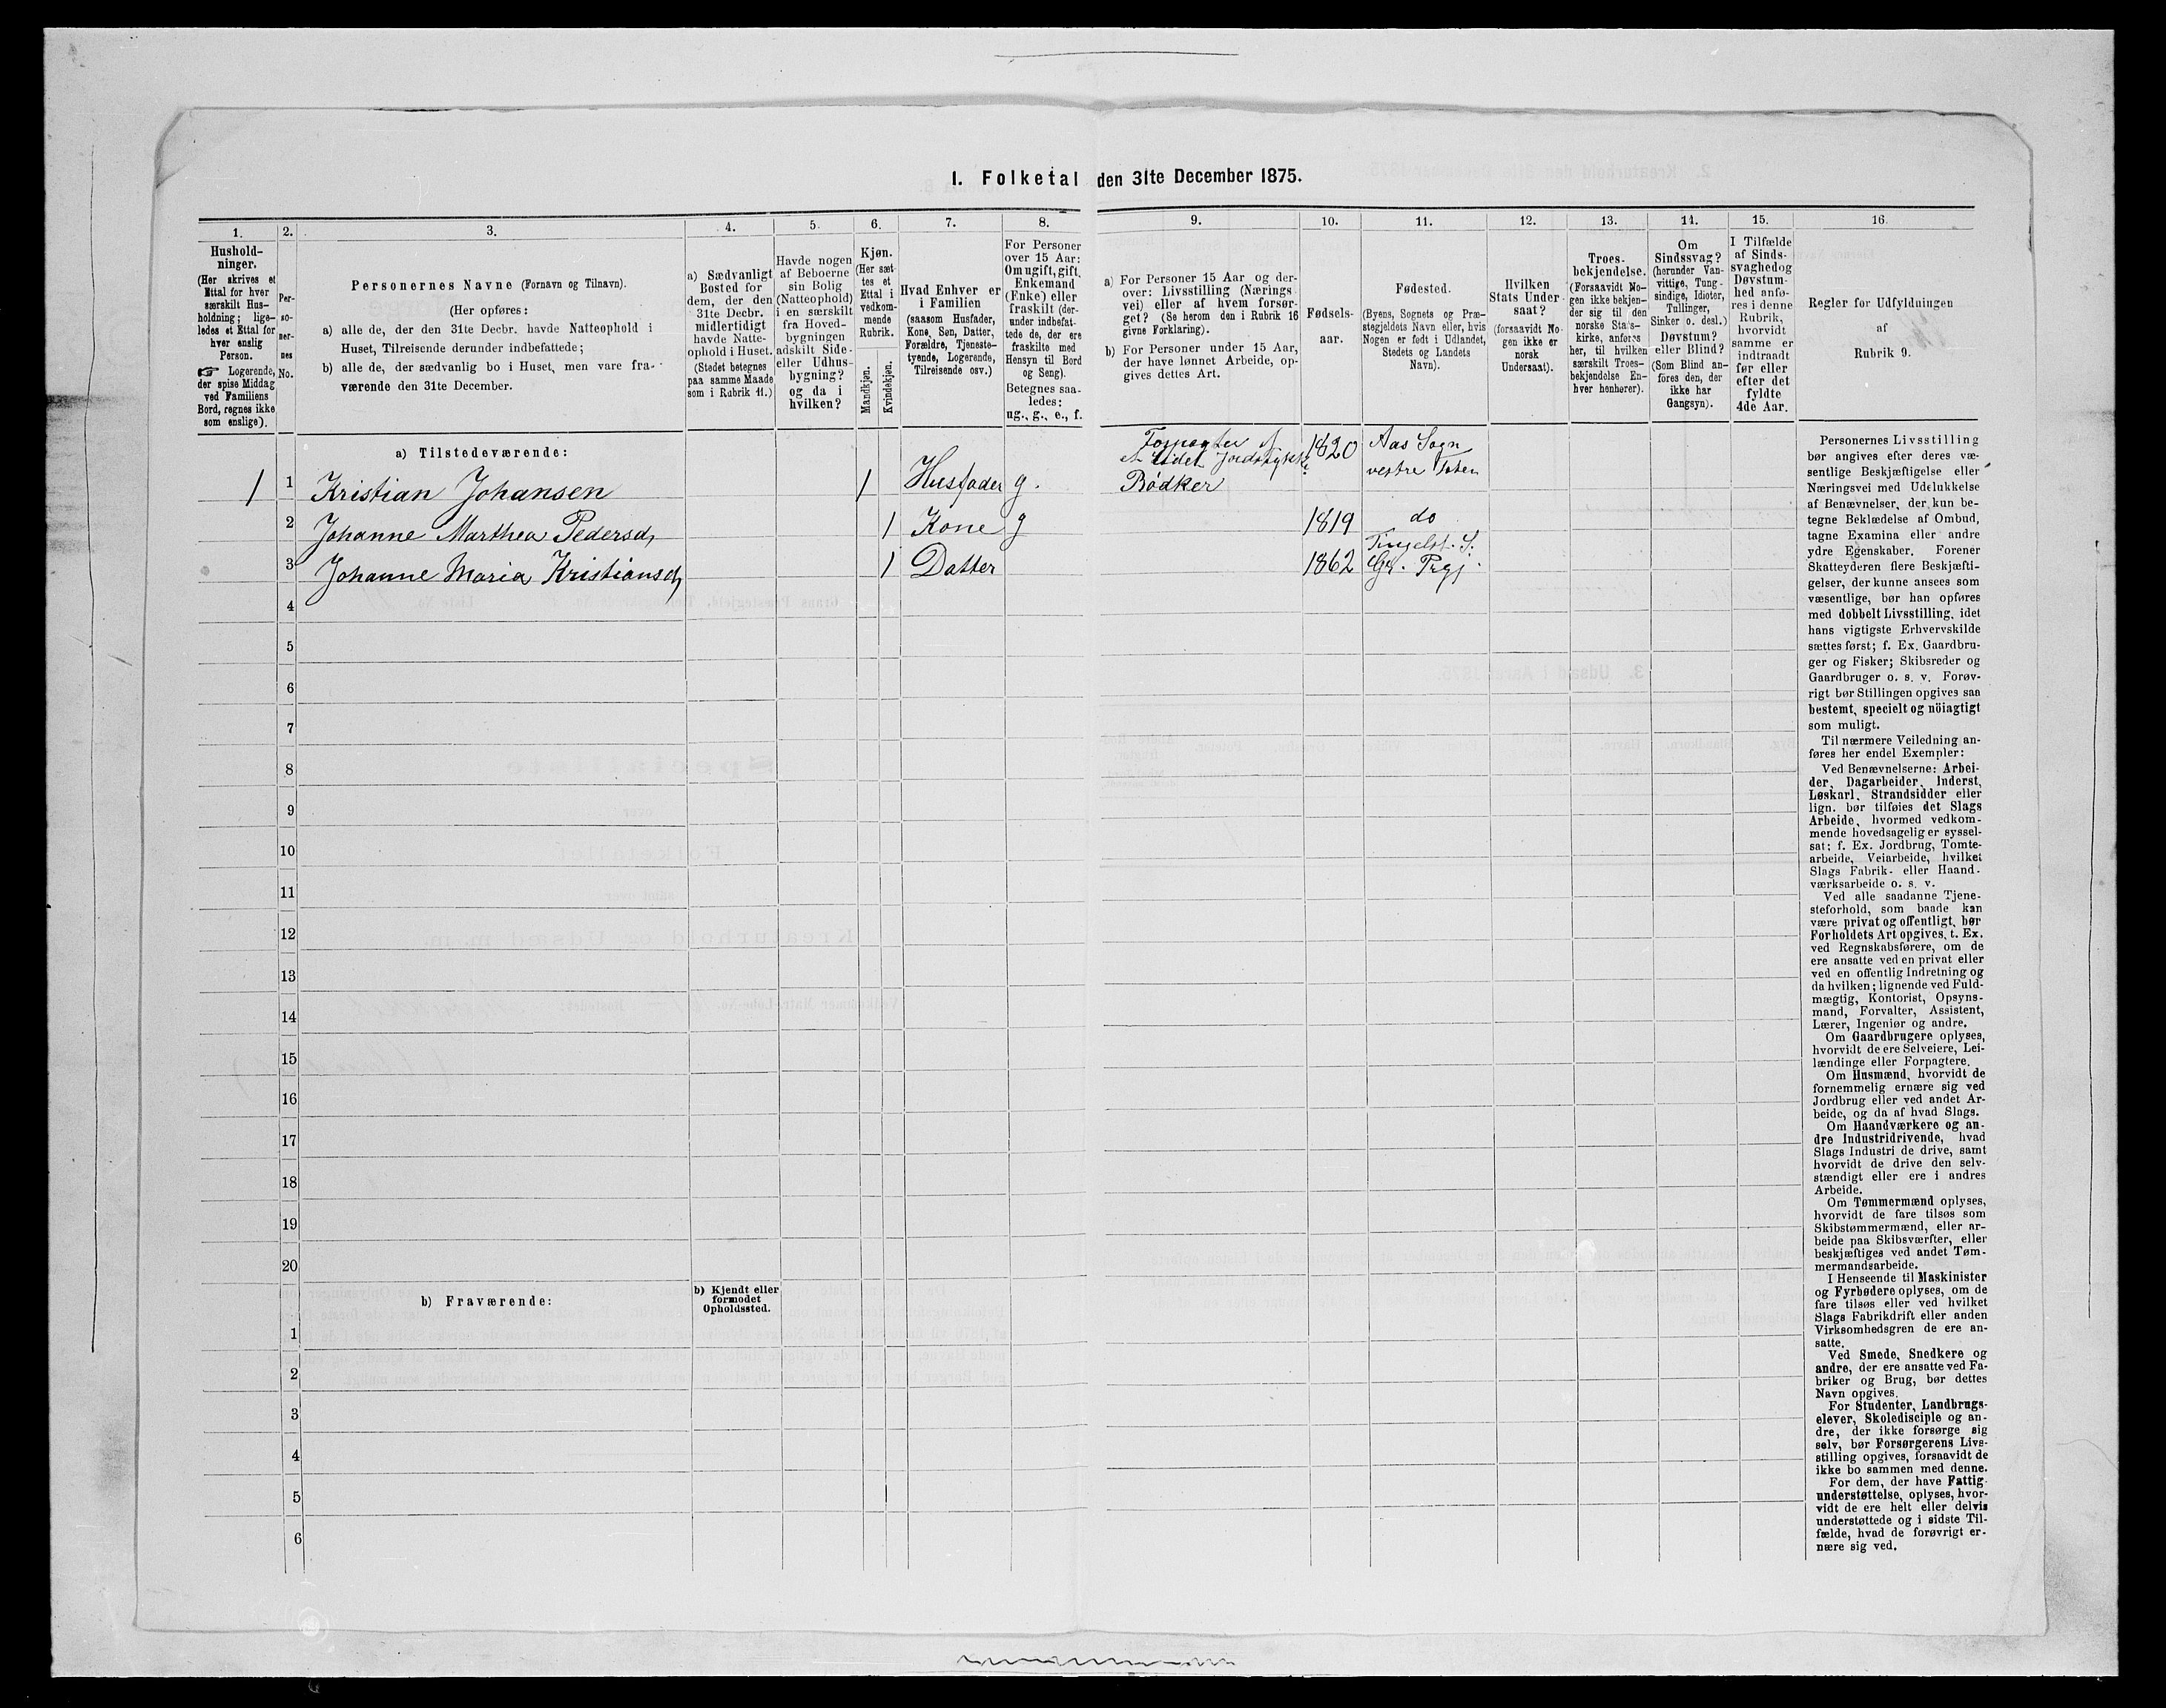 I. Folketal den 31te December 1875.
1. 2. 3. 4. 5. 6. 7. 8. 9. 10. 11. 12. 13. 14. 15. 16.
Hushold-
ninger.
(Her skrives et
Ettal for hver
særskilt Hus-
holdning; lige-
ledes et Ettal for
hver enslig
Person.
☞ Logerende,
der spise Middag
ved Familiens
Bord, regnes ikke
som enslige).
Per-
so-
ner-
nes
No.
Personernes Navne (Fornavn og Tilnavn).
(Her opføres:
a) alle de, der den 31te Decbr. havde Natteophold i
Huset, Tilreisende derunder indbefattede;
b) alle de, der sædvanlig bo i Huset, men vare fra-
værende den 31te December.
a) Sædvanligt
Bosted for
dem, der den
31te Decbr.
midlertidigt
havde Natte-
ophold i Huset.
(Stedet betegnes
paa samme Maade
som i Rubrik 11.)
Havde nogen
af Beboerne
sin Bolig
(Natteophold)
i en særskilt
fra Hoved-
bygningen
adskilt Side-
eller Udhus-
bygning?
og da i
hvilken?
Kjøn.
(Her sæt-
tes et
Ettal i
vedkom-
mende
Rubrik.
Mandkjøn.
Kvindekjøn.
Hvad Enhver er
i Familien
(saasom Husfader,
Kone, Søn, Datter,
Forældre, Tjeneste-
tyende, Logerende,
Tilreisende osv.)
For Personer
over 15 Aar:
Om ugift, gift,
Enkemand
(Enke) eller
fraskilt (der-
under indbefat-
tede de, der ere
fraskilte med
Hensyn til Bord
og Seng).
Betegnes saa-
ledes:
ug., g., e., f.
a) For Personer 15 Aar og der-
over: Livsstilling (Nærings-
vei) eller af hvem forsør-
get? (Se herom den i Rubrik 16
givne Forklaring).
b) For Personer under 15 Aar,
der have lønnet Arbeide, op-
gives dettes Art.
Fødsels-
aar.
Fødested.
(Byens, Sognets og Præ-
stegjeldets Navn eller, hvis
Nogen er født i Udlandet,
Stedets og Landets
Navn).
Hvilken
Stats Under-
saat?
(forsaavidt No-
gen ikke er
norsk
Undersaat).
Troes-
bekjendelse.
(Forsaavidt No-
gen ikke bekjen-
der sig til den
norske Stats-
kirke, anføres
her, til hvilken
særskilt Troes-
bekjendelse En-
hver henhører).
Om
Sindssvag?
(herunder Van-
vittige, Tung-
sindige, Idioter,
Tullinger,
Sinker o. desl.)
Døvstum?
eller Blind?
(Som Blind an-
føres den, der
ikke har
Gangsyn).
I Tilfælde
af Sinds-
svaghed og
Døvstum-
hed anfø-
res i denne
Rubrik,
hvorvidt
samme er
indtraadt
før eller
efter det
fyldte
4de Aar.
Regler for Udfyldningen
af
Rubrik 9.
a) Tilstedeværende:
Forpagter af
et lidet Jordstykke,
1 1 Kristian Johansen 1 Husfader g. Bødker 1820 Aas Sogn
vestre Toten
2 Johanne Marthea Pedersd. 1 Kone g 1819 do
3 Johanne Maria Kristiansd. 1 Datter 1862 Tingelst. S.
Gr. Prgj.
4
5
6
7
8
9
10
11
12
13
14
15
16
17
18
19
20
b) Fraværende:
b) Kjendt eller
formodet
Opholdssted.
1
2
3
4
5
6
Personernes Livsstilling
bør angives efter deres væ-
sentlige Beskjæftigelse eller
Næringsvei med Udelukkelse
af Benævnelser, der kun be-
tegne Beklædelse af Ombud,
tagne Examina eller andre
ydre Egenskaber. Forener
Skatteyderen flere Beskjæfti-
gelser, der kunne ansees som
væsentlige, bør han opføres
med dobbelt Livsstilling, idet
hans vigtigste Erhvervskilde
sættes først; f. Ex. Gaardbru-
ger og Fisker; Skibsreder og
Gaardbruger o. s. v. Forøv-
rigt bør Stillingen opgives saa
bestemt, specielt og nöiagtigt
som muligt.
Til nærmere Veiledning an-
føres her endel Exempler:
Ved Benævnelserne: Arbei-
der, Dagarbeider, Inderst,
Løskarl, Strandsidder eller
lign. bør tilføies det Slags
Arbeide, hvormed vedkom-
mende hovedsagelig er syssel-
sat; f. Ex. Jordbrug, Tomte-
arbeide, Veiarbeide, hvilket
Slags Fabrik- eller Haand-
værksarbeide o. s. v.
Ved alle saadanne Tjene-
steforhold, som baade kan
være privat og offentligt, bør
Forholdets Art opgives, t. Ex.
ved Regnskabsførere, om de
ere ansatte ved en privat eller
ved en offentlig Indretning og
da hvilken; lignende ved Fuld-
mægtig, Kontorist, Opsyns-
mand, Forvalter, Assistent,
Lærer, Ingeniør og andre.
Om Gaardbrugere oplyses,
hvorvidt de ere Selveiere, Lei-
lændinge eller Forpagtere.
Om Husmænd, hvorvidt de
fornemmelig ernære sig ved
Jordbrug eller ved andet Ar-
beide, og da af hvad Slags.
Om Haandværkere og an-
dre Industridrivende, hvad
Slags Industri de drive, samt
hvorvidt de drive den selv-
stændigt eller ere i andres
Arbeide.
Om Tømmermænd oplyses,
hvorvidt de fare tilsøs som
Skibstømmermænd, eller ar-
beide paa Skibsværfter, eller
beskjæftiges ved andet Tøm-
mermandsarbeide.
I Henseende til Maskinister
og Fyrbødere oplyses, om de
fare tilsøs eller ved hvilket
Slags Fabrikdrift eller anden
Virksomhedsgren de ere an-
satte.
Ved Smede, Snedkere og
andre, der ere ansatte ved Fa-
briker og Brug, bør dettes
Navn opgives.
For Studenter, Landbrugs-
elever, Skoledisciple og an-
dre, der ikke forsørge sig
selv, bør Forsørgerens Livs-
stilling opgives, forsaavidt de
ikke bo sammen med denne.
For dem, der have Fattig-
understøttelse, oplyses, hvor-
vidt de ere helt eller delvis
understøttede og i sidste Til-
fælde, hvad de forøvrigt er-
nære sig ved.